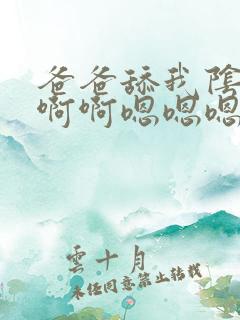 爸爸舔我陰
啊啊嗯嗯嗯
雲十月
未经同意禁止转载